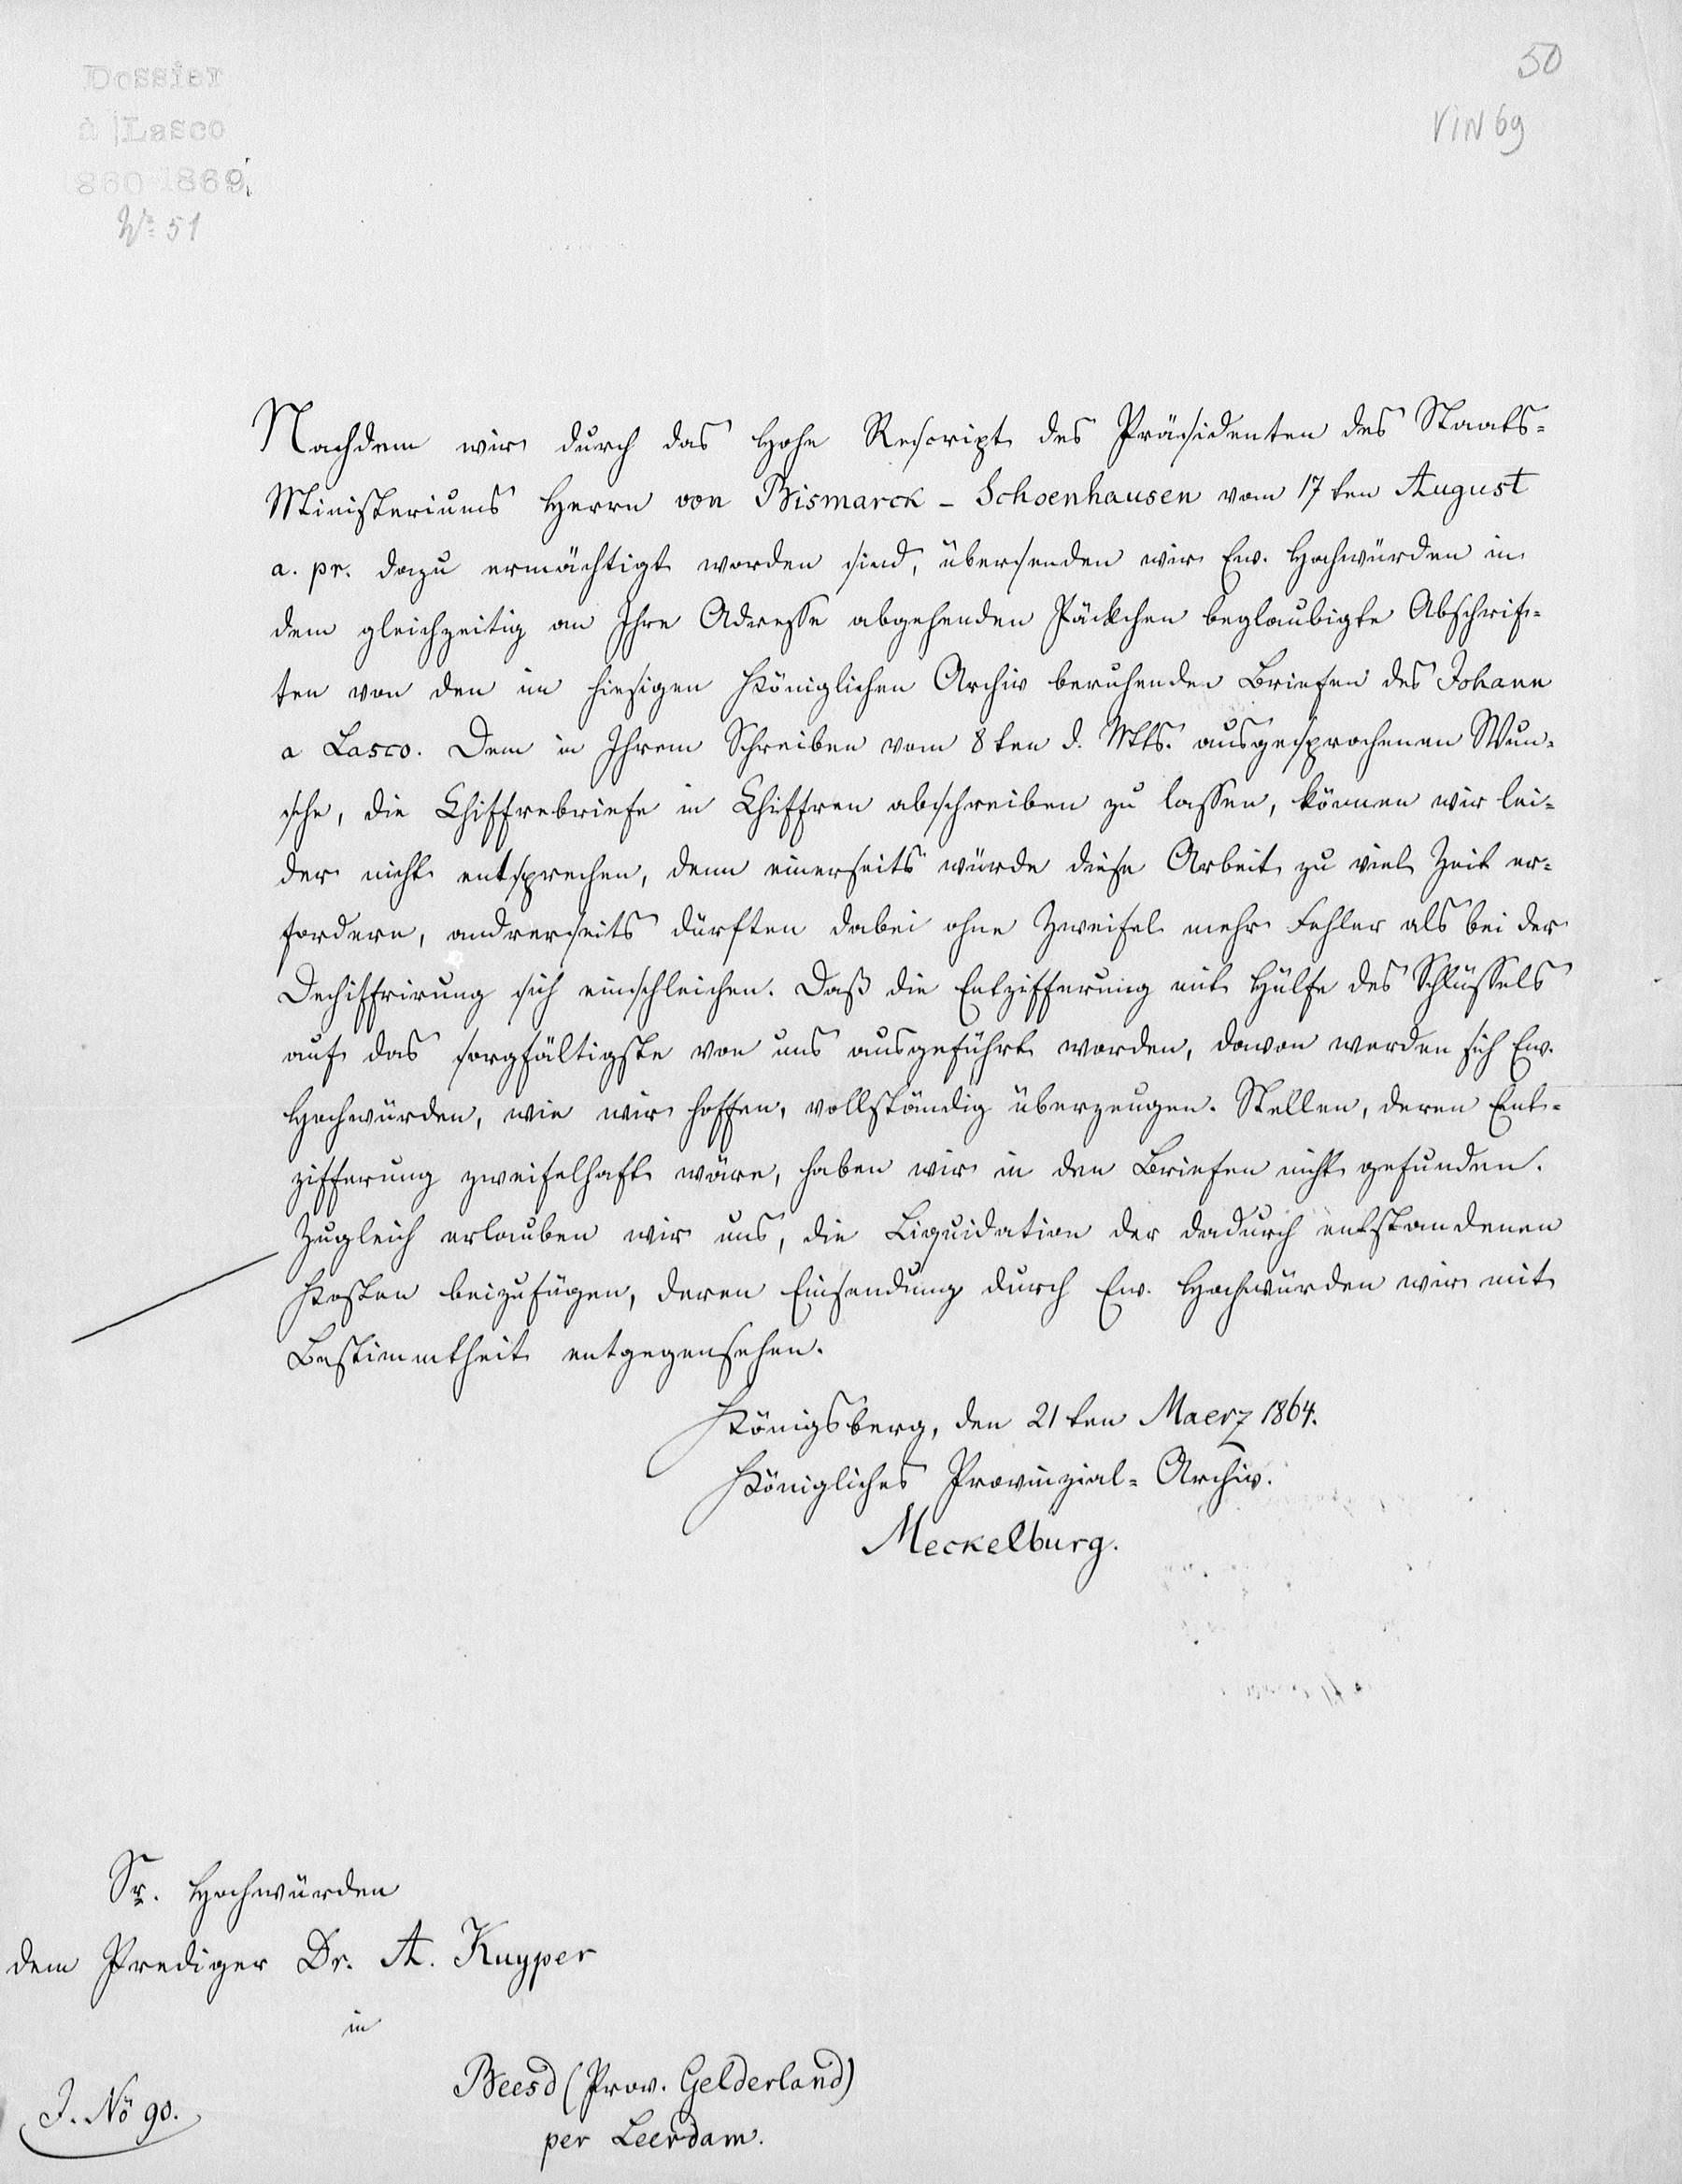 Dossier
à Lasco
1860 1869.
No 51
50
VIN 69
Nachdem wir durch das Hohe Rescript des Präsidenten des Staats-
Ministeriums Herrn von Bismarck - Schoenhausen vom 17ten August
a. pr. dazu ermächtigt worden sind, übersenden wir Ew. Hochwürden in
dem gleichzeitig an Ihre Adresse abgehenden Päckchen beglaubigte Abschrif-
ten von den im hiesigen Königlichen Archiv beruhenden Briefen des Johann
a Lasco. Dem in Ihrem Schreiben vom 8ten d. Mts. ausgesprochenen Wun-
sche, die Chiffrebriefe in Chiffren abschreiben zu lassen, können wir lei-
der nicht entsprechen, denn einerseits würde diese Arbeit zu viel Zeit er-
fordern, andrerseits dürften dabei ohne Zweifel mehr Fehler als bei der
Dechiffrirung sich einschleichen. Daß die Entzifferung mit Hülfe des Schlüssels
auf das sorgfältigste von uns ausgeführt worden, davon werden sich Ew.
Hochwürden, wie wir hoffen, vollständig überzeugen. Stellen, deren Ent-
zifferung zweifelhaft wäre, haben wir in den Briefen nicht gefunden.
Zugleich erlauben wir uns, die Liquidation der dadurch entstandenen
Kosten beizufügen, deren Einsendung durch Ew. Hochwürden wir mit
Bestimmtheit entgegensehen.
Königsberg, den 21ten Maerz 1864.
Königliches Provinzial-Archiv.
Meckelburg.
Sr. Hochwürden
dem Prediger Dr. A. Kuyper
in
Beesd (Prov. Gelderland)
per Leerdam.
J. No 90.